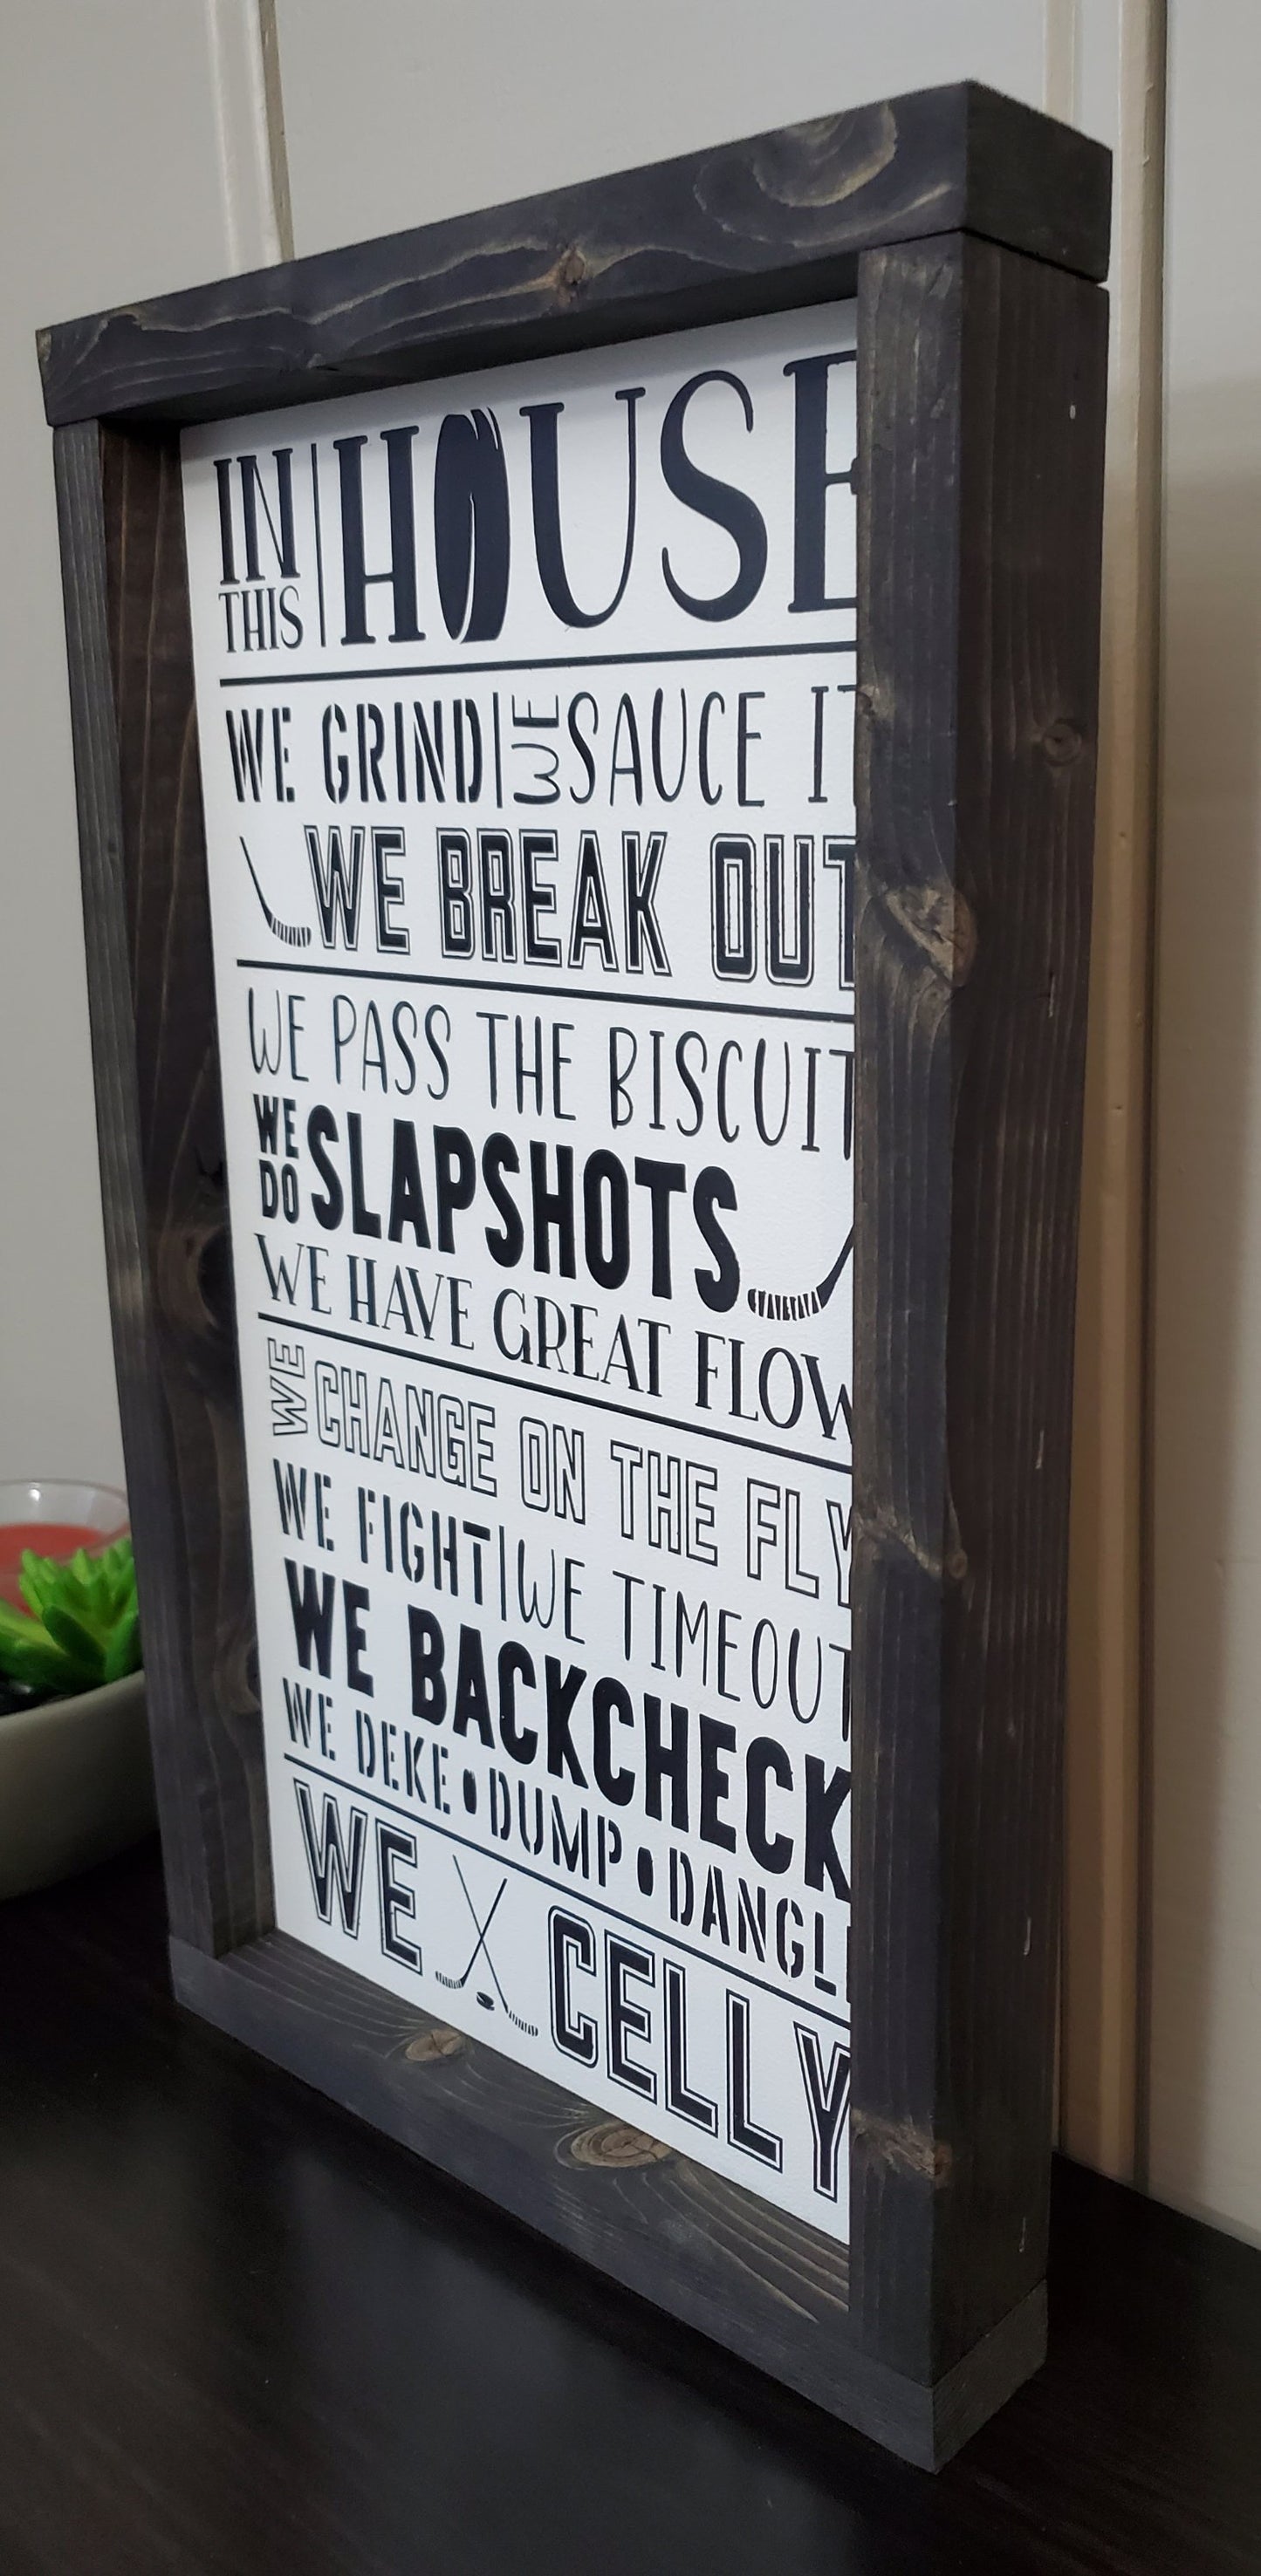 IN THIS | HOUSE
WE GRIND | WE SAUCE IT
WE BREAK OUT
WE PASS THE BISCUIT
WE DO SLAPSHOTS
WE HAVE GREAT FLOW
WE CHANGE ON THE FLY
WE FIGHT | WE TIMEOUT
WE BACKCHECK
WE DEKE • DUMP • DANGL
WE CELLY